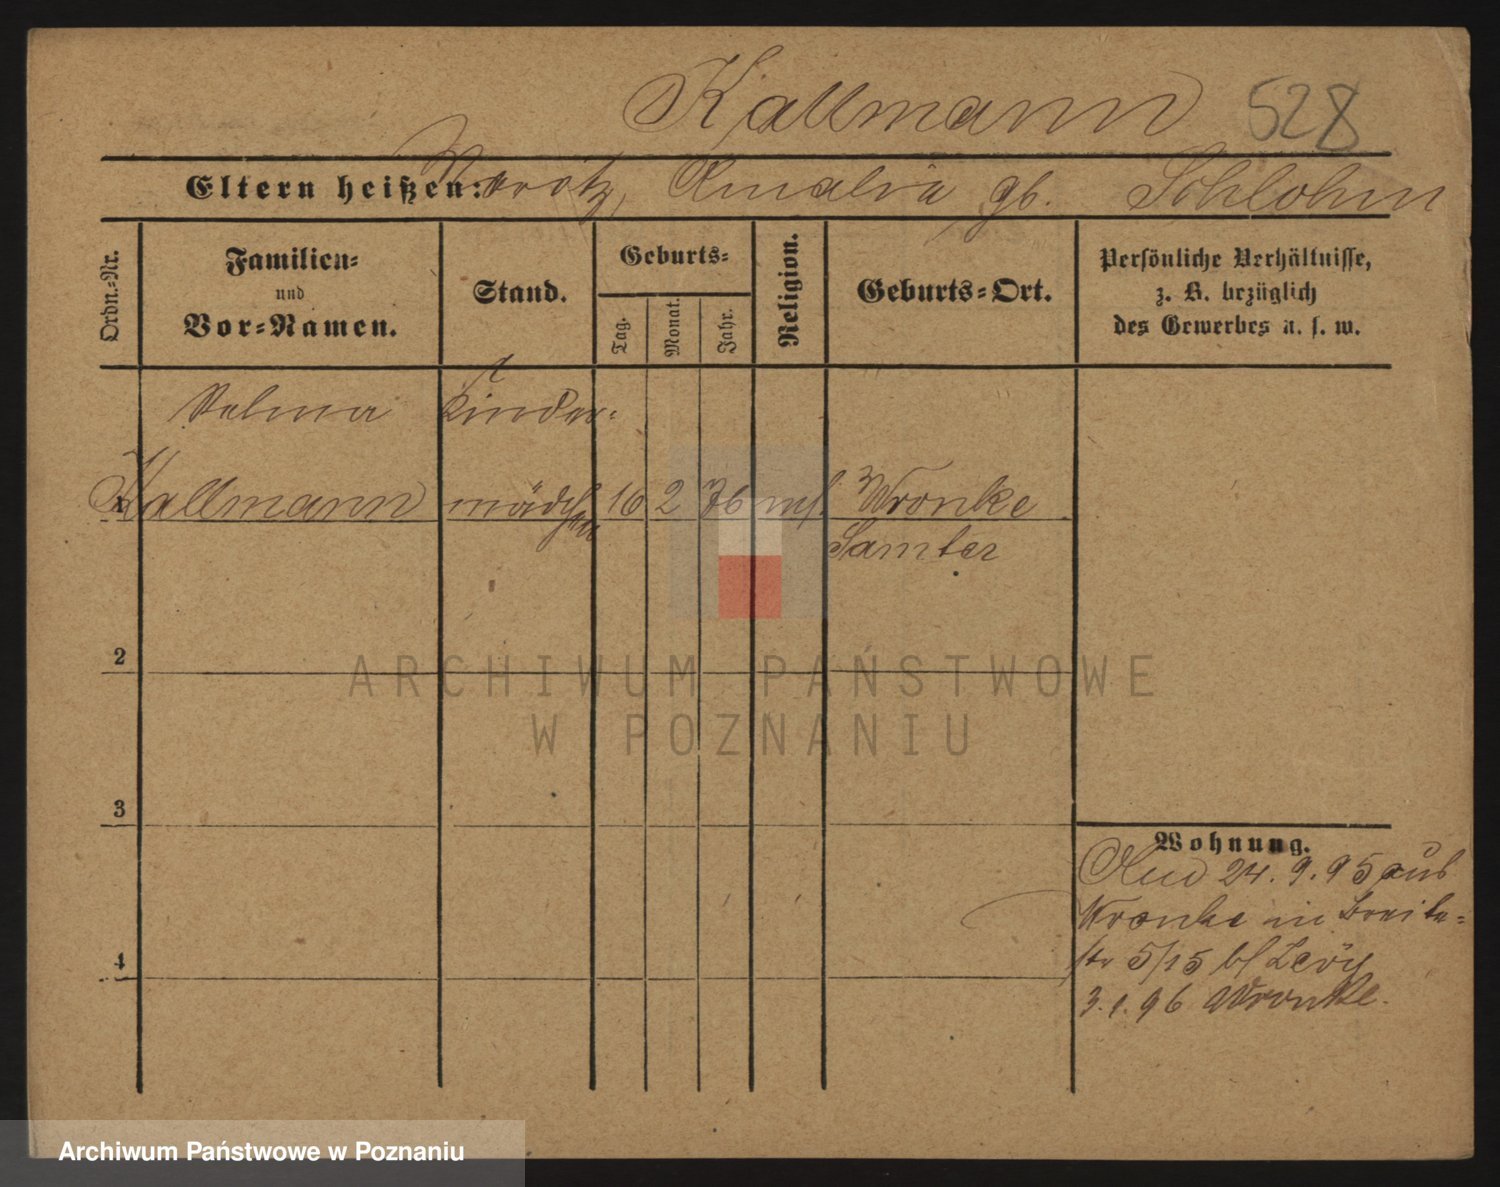 Kallmann 528
Eltern heißen: Moritz, Amalia gb. Schlohm
Ordn.-Nr.
Familien-
und
Vor-Namen.
Stand.
Geburts-
Tag.
Monat.
Jahr.
Religion.
Geburts-Ort.
Persönliche Verhältnisse,
z. B. bezüglich
des Gewerbes u. s. w.
Selma Kinder-
1 Kallmann mädchen 16 2 76 mos. Wronke
Samter
2
3
4
Wohnung.
24.9.95 aus
Wronke in Breite-
str 5/15 b/ Levy
3.1.96 Wronke.
ARCHIWUM PAŃSTWOWE
W POZNANIU
Archiwum Państwowe w Poznaniu